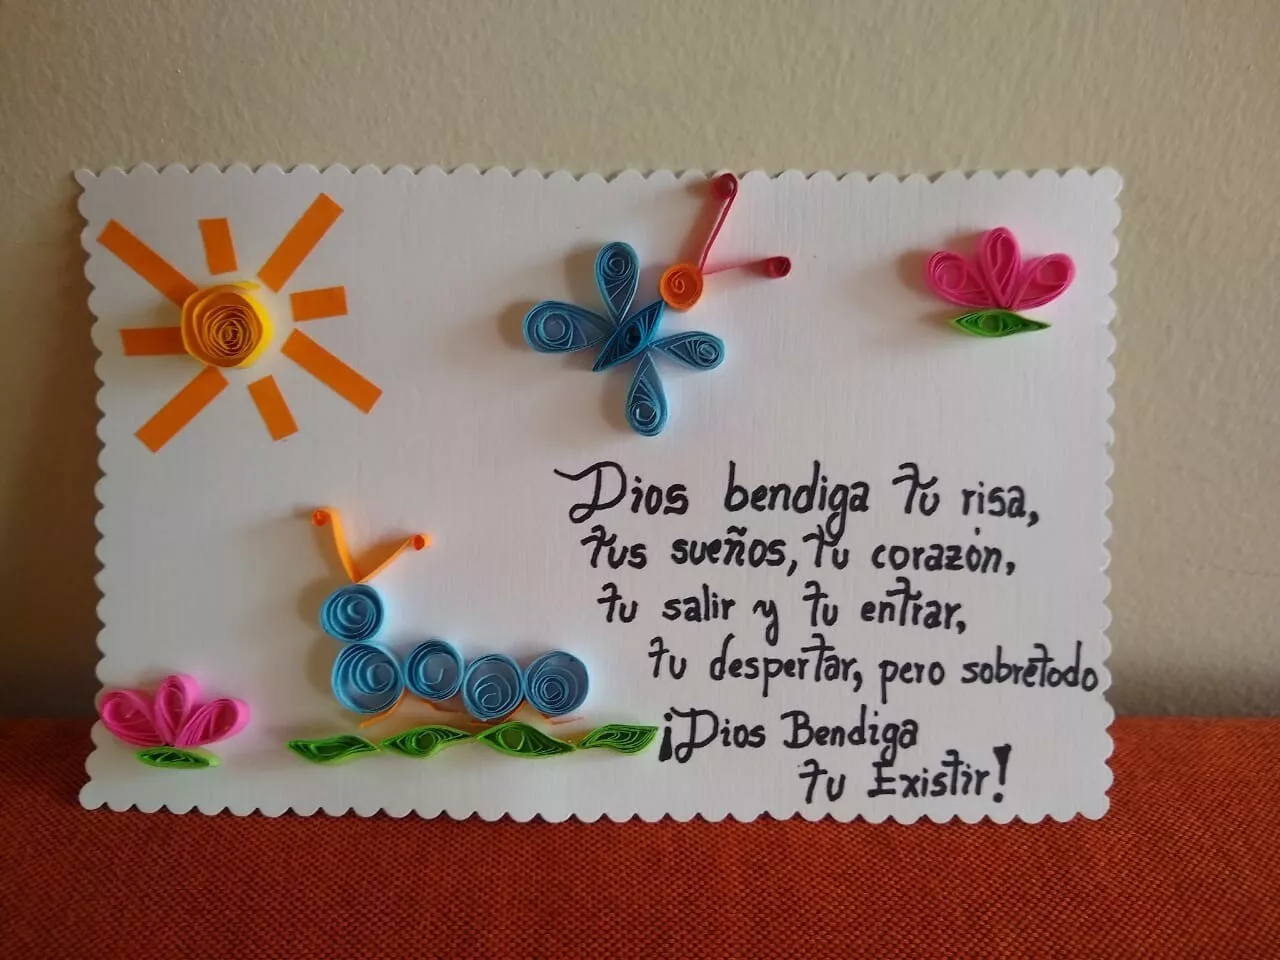 Dios bendiga tu risa,
tus sueños, tu corazón,
tu salir y tu entrar,
tu despertar, pero sobretodo
¡Dios Bendiga
tu Existir!